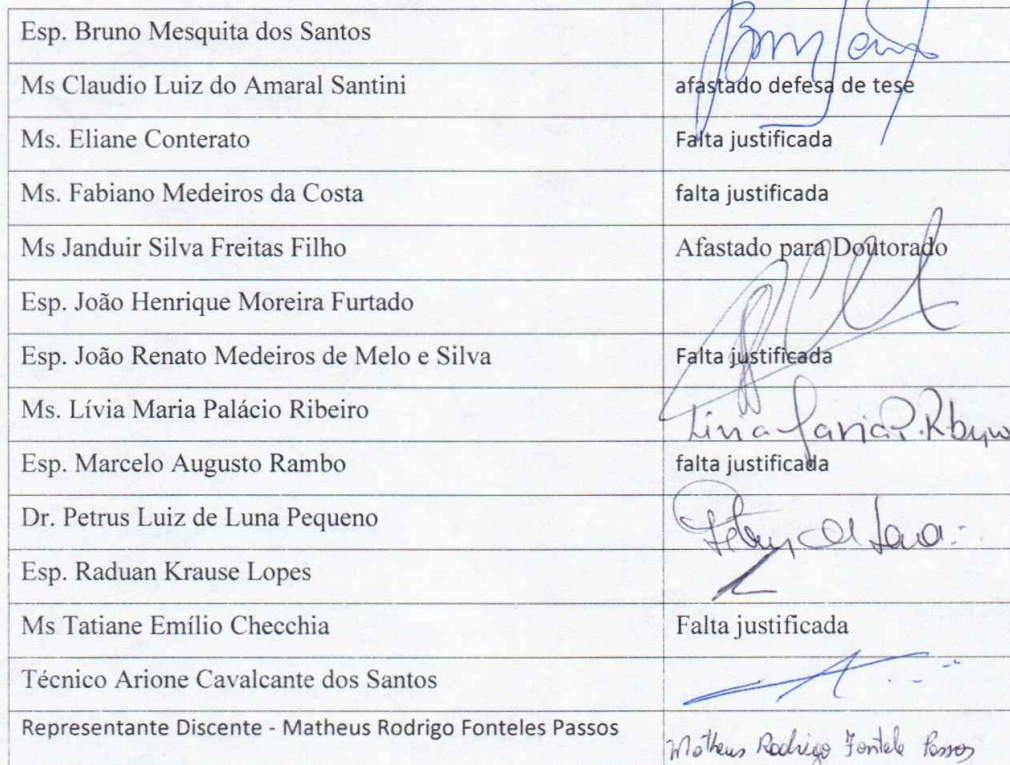 Esp. Bruno Mesquita dos Santos
Ms Claudio Luiz do Amaral Santini afastado defesa de tese
Ms. Eliane Conterato Falta justificada
Ms. Fabiano Medeiros da Costa falta justificada
Ms Janduir Silva Freitas Filho Afastado para Doutorado
Esp. João Henrique Moreira Furtado
Esp. João Renato Medeiros de Melo e Silva Falta justificada
Ms. Lívia Maria Palácio Ribeiro
Esp. Marcelo Augusto Rambo falta justificada
Dr. Petrus Luiz de Luna Pequeno
Esp. Raduan Krause Lopes
Ms Tatiane Emílio Checchia Falta justificada
Técnico Arione Cavalcante dos Santos
Representante Discente - Matheus Rodrigo Fonteles Passos Matheus Rodrigo Fontele Passos